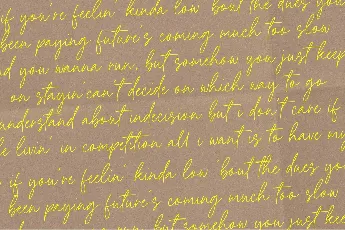 if you're feelin' kinda low 'bout the dues you
been paying future's coming much too slow
d you wanna run, but somehow you just keep
on stayin can't decide on which way to go
understand about indecision but i don't care if
livin' in competition all i want is to have my
if you're feelin' kinda low 'bout the dues yo
been paying future's coming much too slow
but somehow you just kee